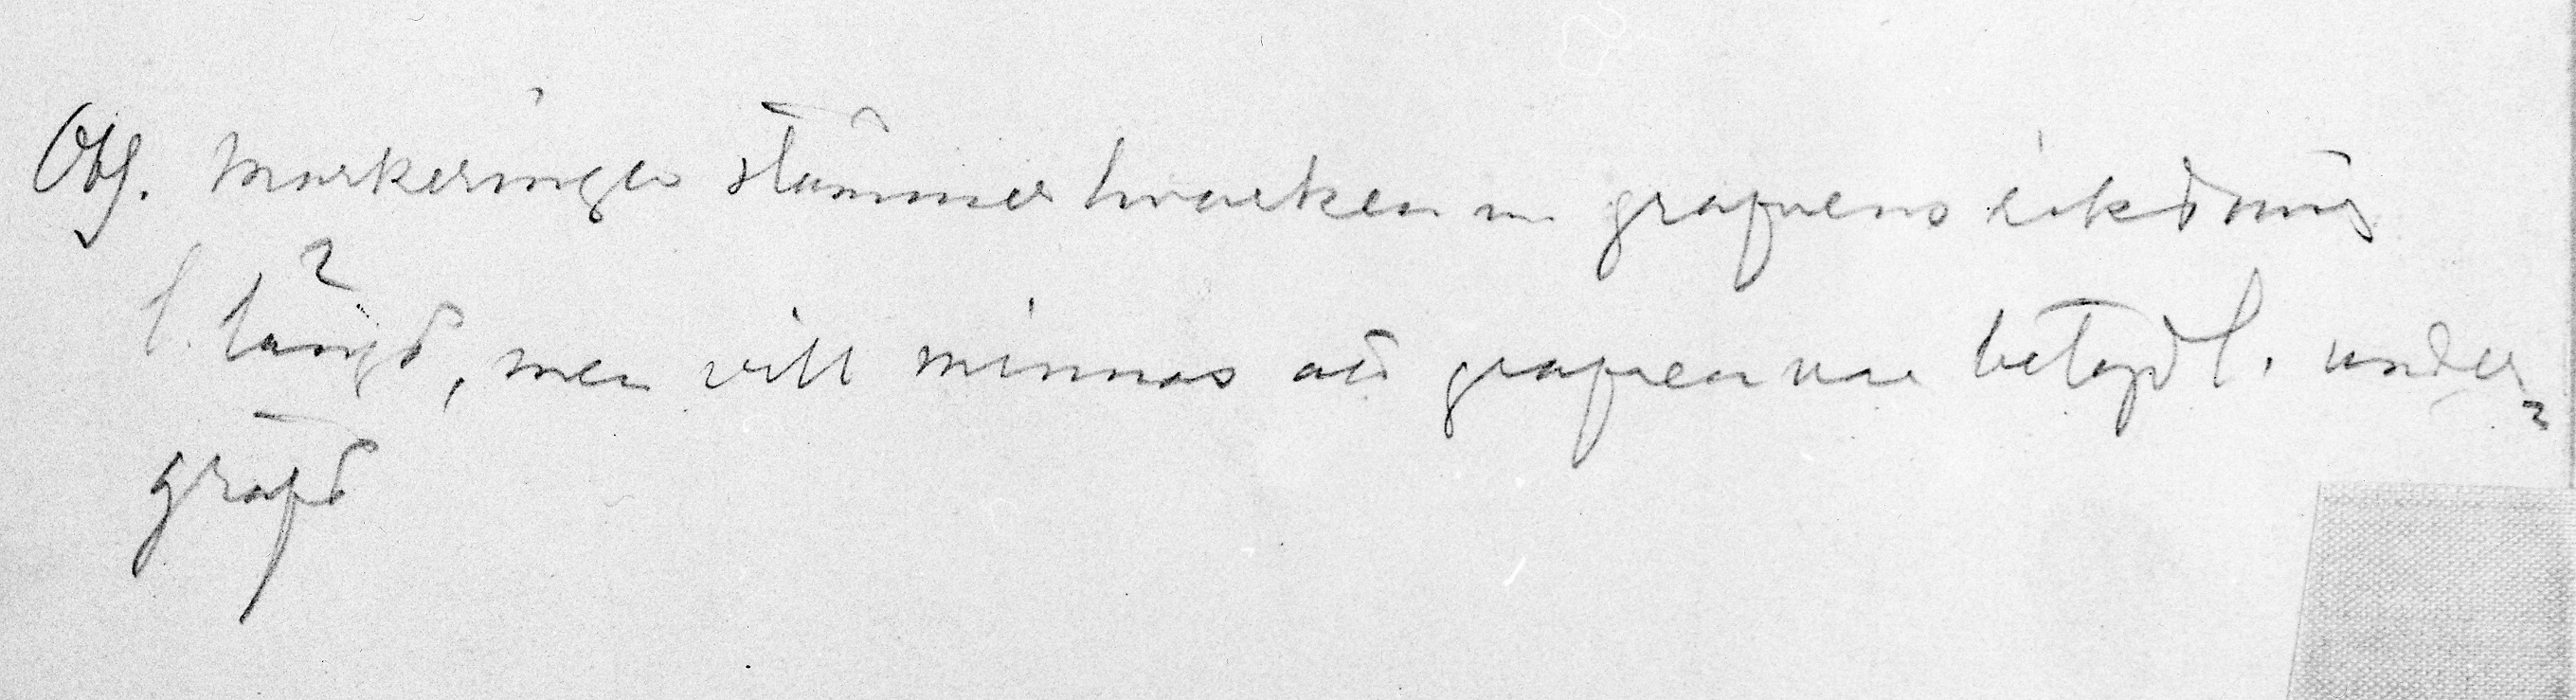 Obs. Markeringen stämmer hvarken m grafvens riktning
l. längd, men vill minnas att grafven var betydl. under=
gräfd